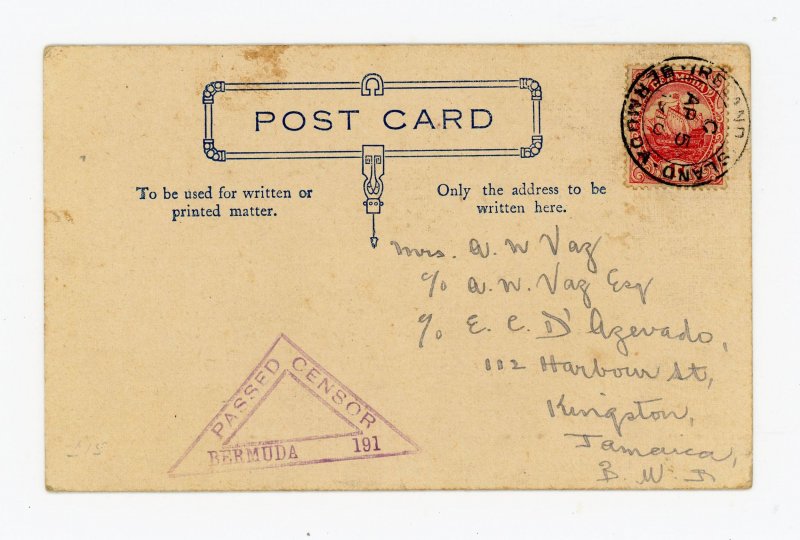 POST CARD
To be used for written or
printed matter.
Only the address to be
written here.
BERMUDA
IRELAND ISLAND BERMUDA
C
AP 5
Mrs. A. N Vaz
c/o A. N. Vaz Esq
c/o E. C. D'Azevado,
112 Harbour St,
Kingston,
Jamaica,
B. W. I
PASSED CENSOR
BERMUDA 191